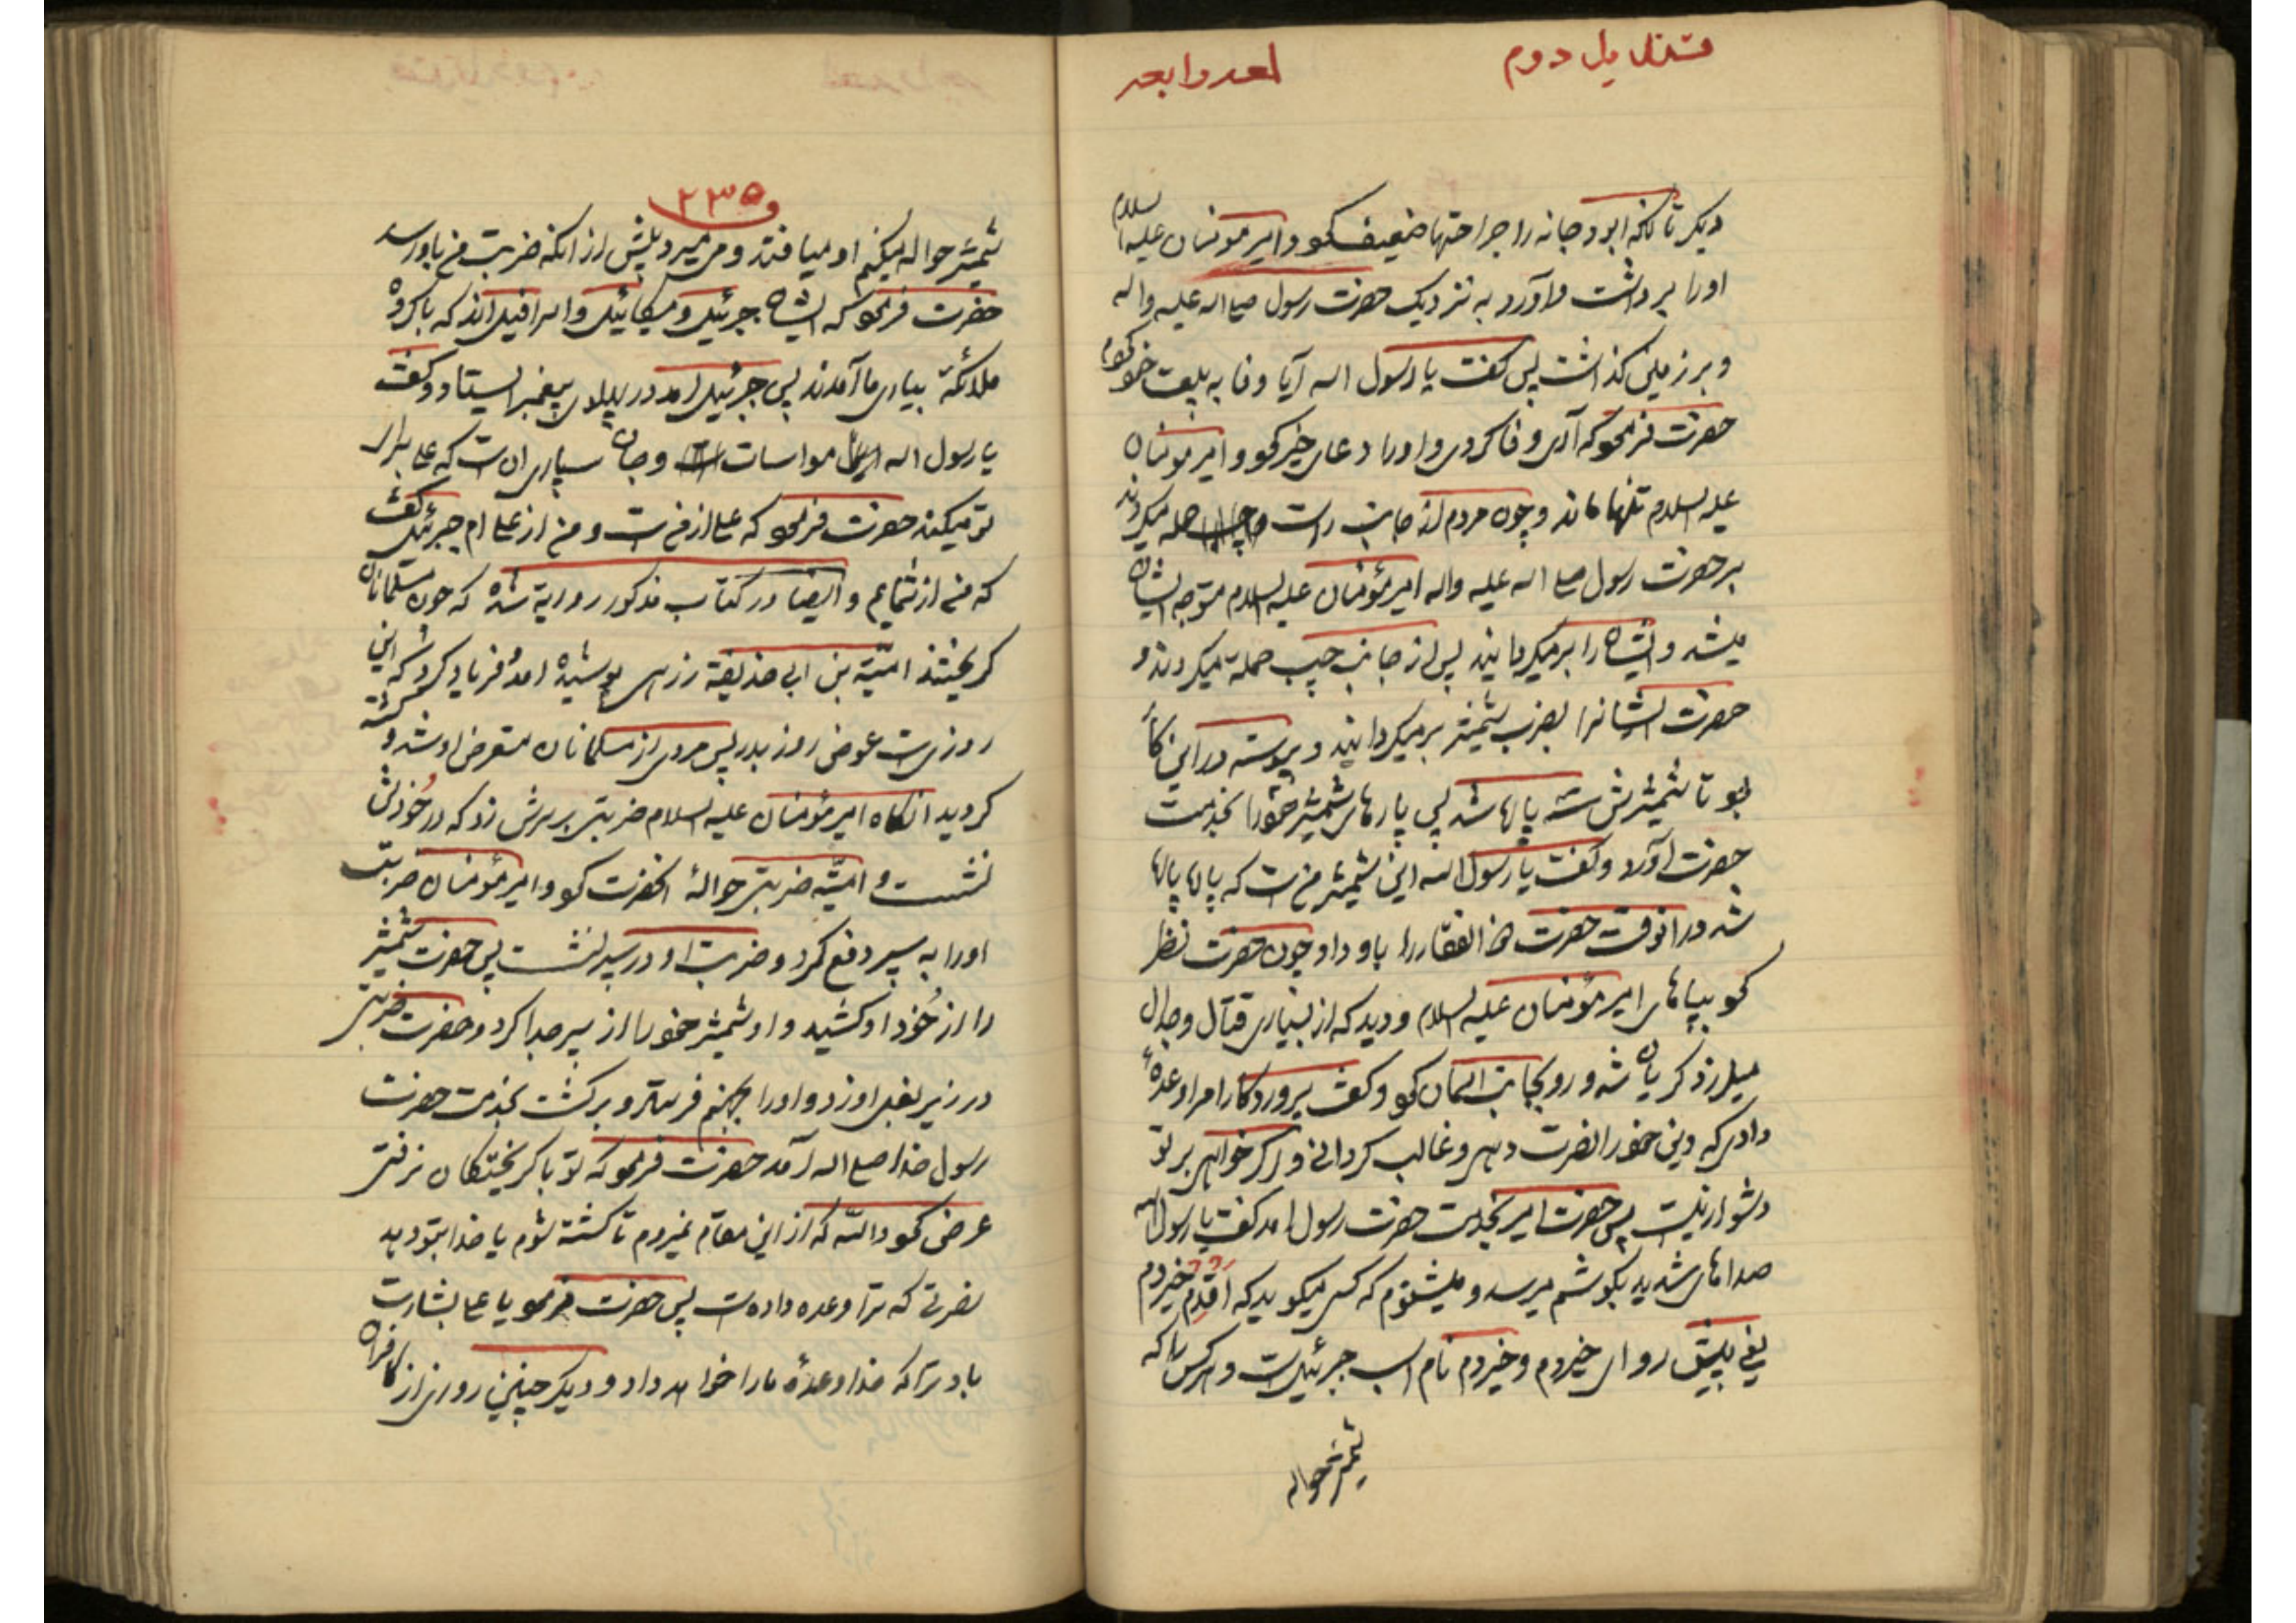 قندیل دوم
لمعه رابعه
دیگر تا آنکه ابودجانه را جراحتها ضعیف کرد و امیر مومنان علیه السلام
اورا برداشت و آورد به نزدیک حضرت رسول صلی اله علیه واله
و بر زمین گذاشت پس گفت یا رسول اله آیا وفا به بیعت خود کردم
حضرت فرمود که آری وفا کردی و اورا دعای خیر کرد و امیر مومنان
علیه السلام تنها ماند و چون مردم از جانب راست حمله میکردند
بر حضرت رسول صلی اله علیه واله امیر مؤمنان علیه السلام متوجه ایشان
میشد و ایشان را برمیگردانید پس از جانب چپ حمله میکردند و
حضرت ایشانرا بضرب شمشیر برمیگردانید و پیوسته در این کار
بود تا شمشیرش سه پاره شد پس پارهای شمشیر خود را بخدمت
حضرت آورد و گفت یا رسول اله این شمشیر من است که پاره پاره
شد در آنوقت حضرت ذوالفقار را باو داد و چون حضرت نظر
کرد بپاهای امیر مؤمنان علیه السلام و دید که از بسیاری قتال و جدال
میلرزد گریان شد و رو بجانب آسمان کرد و گفت پروردگارا مرا وعده
دادی که دین خود را نصرت دهی و غالب گردانی و اگر خواهی بر تو
دشوار نیست پس حضرت امیر بخدمت حضرت رسول آمد گفت یا رسول اله
صداهای شدید بگوشم میرسد و میشنوم که کسی میگوید که اَقدِم خیزوم
یعنی پیش رو ای خیزوم و خیزوم نام اسب جبرئیل است و هر کس را که
شمشیر حواله
۲۳۵
شمشیر حواله میکنم او میافتد و می میرد پیش از آنکه ضربت من باو رسد
حضرت فرمود که ایشان جبرئیل و میکائیل و اسرافیل اند که با گروه
ملائکه بیاری ما آمدند پس جبرئیل آمد در پهلوی پیغمبر ایستاد و گفت
یا رسول اله مواسات و جان سپاری آن است که علی برای
تو میکند حضرت فرمود که علی از من است و من از علی ام جبرئیل گفت
که من از شمایم و ایضا در کتاب مذکور روایة شده که چون مسلمانان
گریختند امیّة بن ابی حذیفة زرهی پوشیده آمد فریاد کرد که این
روزی است عوض روز بدر پس مردی از مسلمانان متعرض او شد و کشته
گردید آنگاه امیر مؤمنان علیه السلام ضربتی بر سرش زد که در خُودش
نشست و امیّه ضربتی حوالهٔ آنحضرت کرد و امیر مؤمنان ضربت
اورا به سپر دفع کرد و ضربت او در سپر نشست پس حضرت شمشیر
را از خُود او کشید و او شمشیر خود را از سپر جدا کرد و حضرت ضربتی
در زیر بغل او زد و اورا بجهنم فرستاد و برگشت بخدمت حضرت
رسول خدا صلی اله آمد حضرت فرمود که تو با گریختگان نرفتی
عرض کرد والله که از این مقام نمیروم تا کشته شوم یا خدا بتو دهد
نصرتی که ترا وعده داده است پس حضرت فرمود یا علی بشارت
باد ترا که خدا وعدهٔ مارا خواهد داد و دیگر چنین روزی از کافران